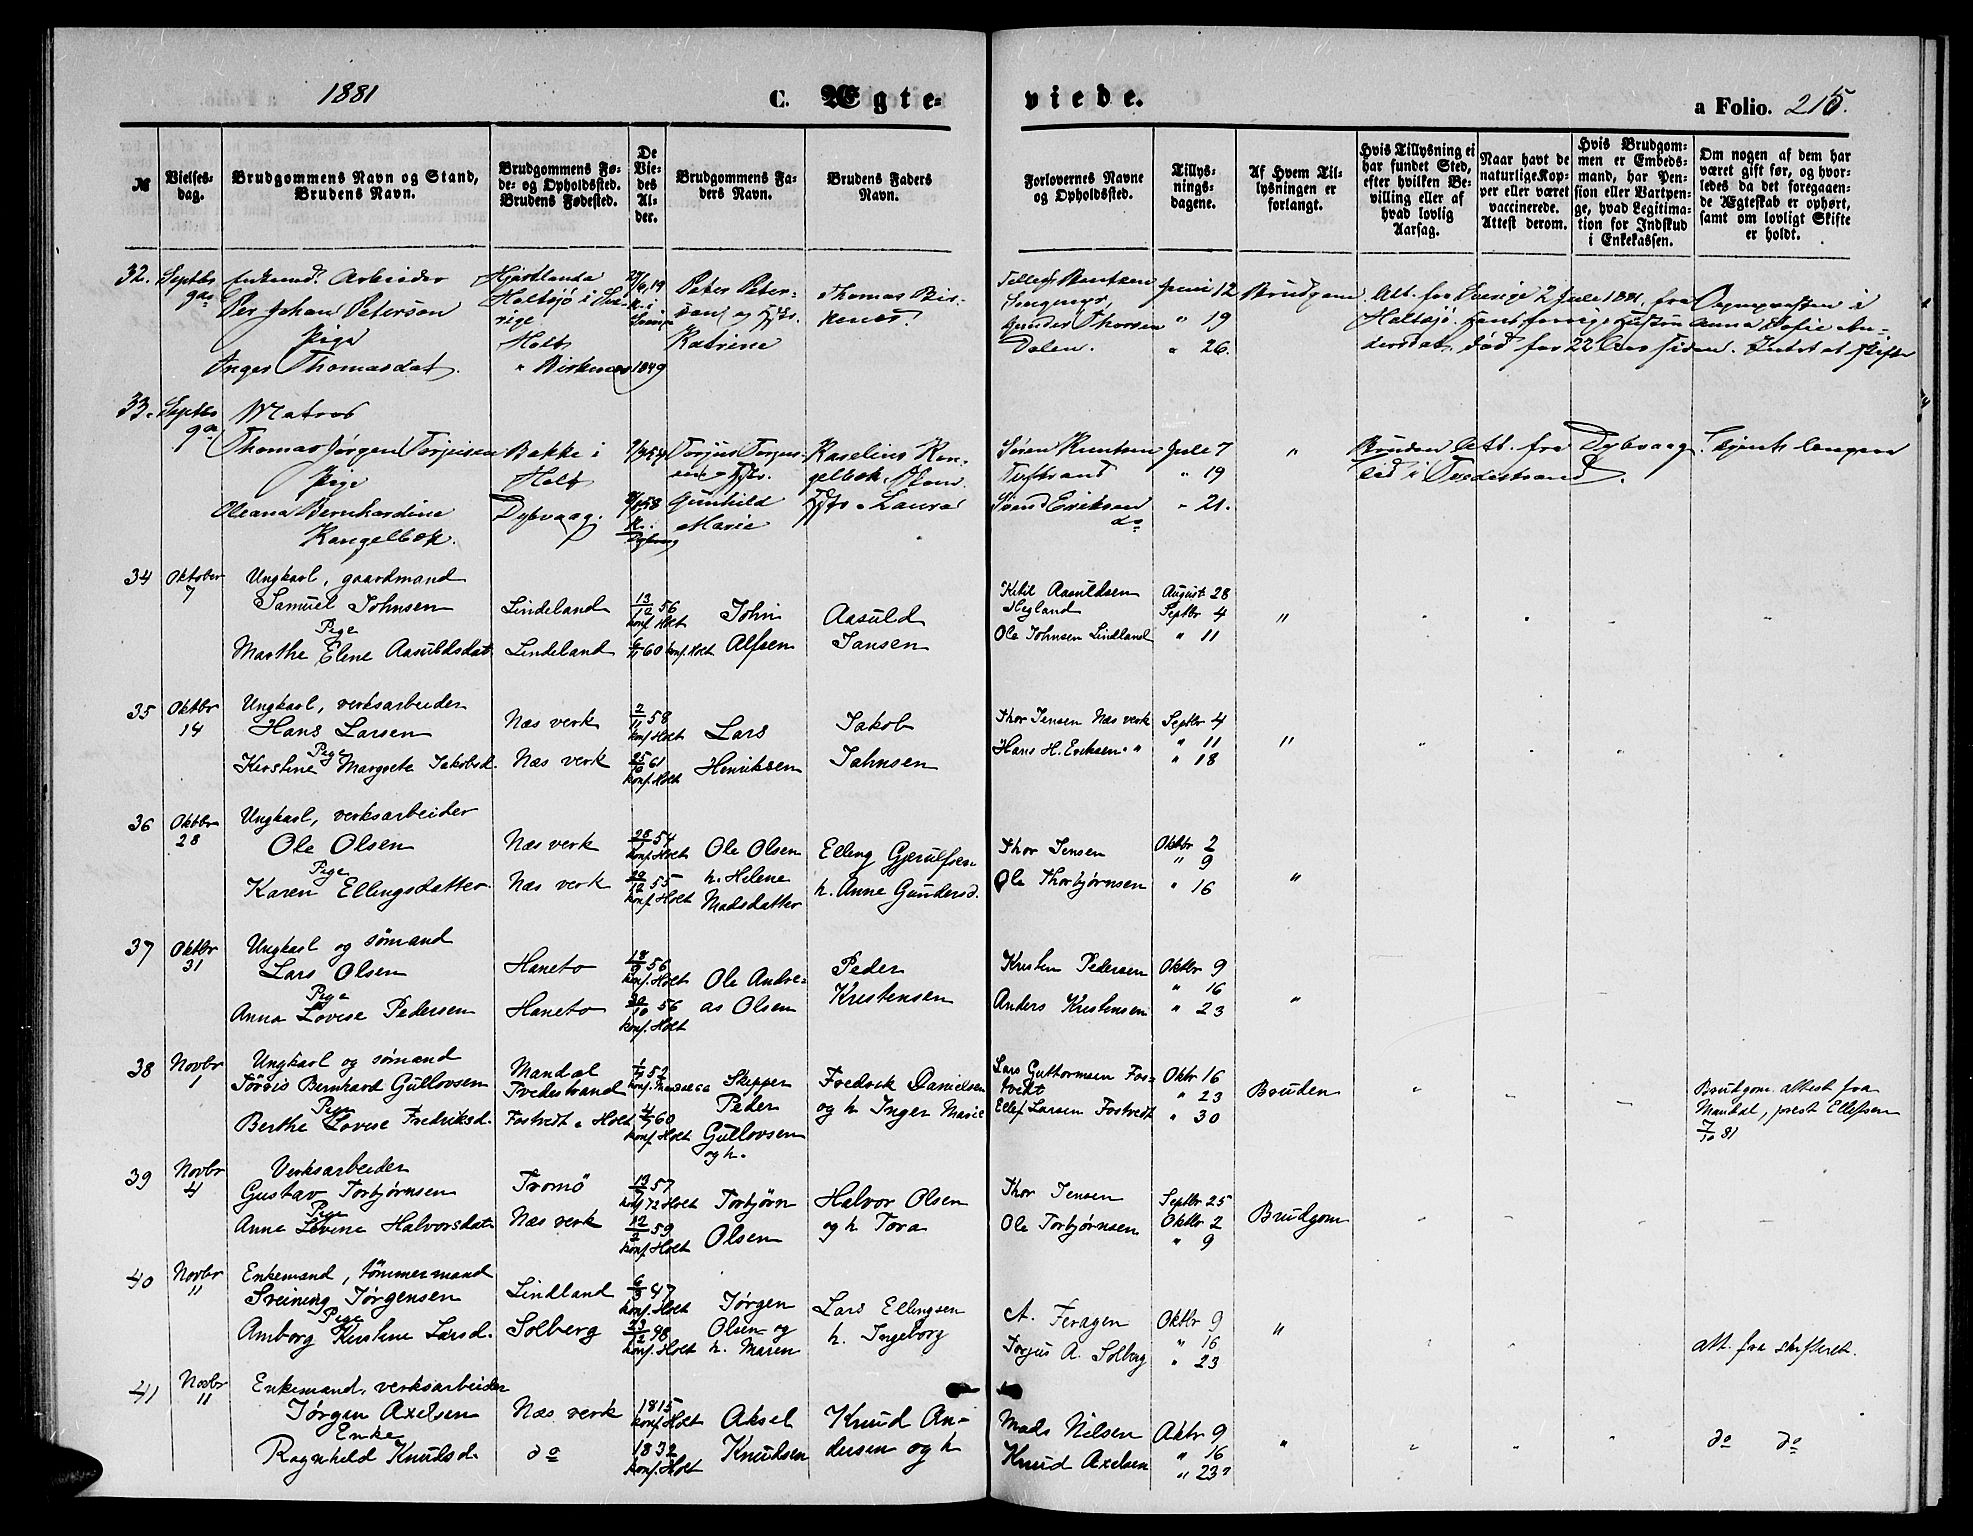 1881
C. Ægte-
viede.
a Folio. 215.
№
Vielses-
dag.
Brudgommens Navn og Stand,
Brudens Navn.
Brudgommens Fø-
de- og Opholdssted.
Brudens Fødested.
De
Vie-
des
Al-
der.
Brudgommens Fa-
ders Navn.
Brudens Faders
Navn.
Forlovernes Navne
og Opholdssted.
Tillys-
nings-
dagene.
Af Hvem Til-
lysningen er
forlangt.
Hvis Tillysning ei
har fundet Sted,
efter hvilken Be-
villing eller af
hvad lovlig
Aarsag.
Naar havt de
naturlige Kop-
per eller været
vaccinerede.
Attest derom.
Hvis Brudgom-
men er Embeds-
mand, har Pen-
sion eller Vartpen-
ge, hvad Legitima-
tion for Indskud
i Enkekassen.
Om nogen af dem har
været gift før, og hvor-
ledes da det foregaaen-
de Ægteskab er ophørt,
samt om lovligt Skifte
er holdt.
32. Septbr Enkemd. Arbeider
Per Johan Peterson
Pige
Inger Thomasdat.
Holt
" Birkenes 1849
Peter Peter-
Katrine
Thomas Bir-
kenes.
Gunder Thorsen
Dalen.
Juni 12
" 19
" 26.
Brudgom
33. Septbr Matros
Thomas Jørgen Torjusen
Pige
Oleana Bernhardine
Kangelbok.
Bakke i
Holt
Dybvaag.
Gunhild
Marie
Søren Knutsen
Svend Eriksen
do
Jule 7
" 19
" 21.
"
Bruden Att. fra Dybvaag.
tid i Tvedestrand.
34 Oktober
7
Ungkarl, gaardmand
Samuel Johnsen
Pige
Marthe Elene Aasuldsdat.
Lindeland
Lindeland
13/12 56
konf. Holt
6/11 60 konf. Holt
John
Alfsen
Aasuld
Jansen
Ketil Aasuldsen
Hegland
Ole Johnsen Lindland
August 28
Septbr 4
" 11
"
35 Oktbr
14
Ungkarl, verksarbeider
Hans Larsen
Pige
Kirstine Margrete Jakobsd.
Næs verk
Næs verk
2/11 58
konf. Holt
konf. Holt
Lars
Henriksen
Jakob
Jahnsen
Thor Jensen Næs verk
Hans H. Eriksen " "
Septbr 4
" 11
" 18
"
36 Oktbr
28
Ungkarl, verksarbeider
Ole Olsen
Pige
Karen Ellingsdatter
Næs verk
Næs verk
konf. Holt
konf. Holt
Ole Olsen
h. Helene
Madsdatter
Elling Gjerulfsen
h. Anne Gundersd.
Thor Jensen
Ole Thorbjørnsen
Oktbr 2
" 9
" 16
"
37 Oktbr
31
Ungkarl og sømand
Lars Olsen
Pige
Anna Lovise Pedersen
Haneto
Haneto
18/9 56
konf. Holt
30/10 56
konf. Holt
Ole Andre-
as Olsen
Peder
Kristensen
Kristen Pedersen
Anders Kristensen
Oktbr 9
" 16
" 23
"
38 Novbr
1
Ungkarl og sømand
Pige
Berthe Lovise Fredriksd.
Mandal
Tvedestrand
Fostvedt " Holt
konf. Mandal
konf. Holt
Skipper
Peder
Gullovsen
og h.
Fredrik Danielsen
og h Inger Marie
Lars Guttormsen Fos-
tvedt
Ellef Larsen Fostvedt
Oktbr 16
" 23
" 30
Bruden
Brudgom. attest fra
Mandal, prest Ellefsen
7/10 81
39 Novbr
4
Verksarbeider
Gustav Torbjørnsen
Pige
Anne Lovine Halvorsdat.
Tromö
Næs verk
konf 72 Holt
12/2 59
konf. Holt
Torbjørn
Olsen
Halvor Olsen
og h Tora
Thor Jensen
Ole Torbjørnsen
Septbr 25
Oktbr 2
" 9
Brudgom
40 Novbr
11
Enkemand, tømmermand
Sveining Jørgensen
Pige
Amborg Kirstine Larsd.
Lindland
Solberg
konf. Holt
konf. Holt
Jørgen
Olsen og
h. Maren
Lars Ellingsen
h. Ingeborg
A. Feragen
Torjus A. Solberg
Oktbr 9
" 16
" 23
"
att. fra skifteret.
41 Novbr
11
Enkemand, verksarbeider
Jørgen Axelsen
Enke
Ragnhild Knudsd.
Næs verk
do
1815
konf. Holt
1832
konf. Holt
Aksel
Knudsen
Knud An-
dersen og h
Mads Nilsen
Knud Axelsen
Oktbr 9
" 16
" 23
"
do do